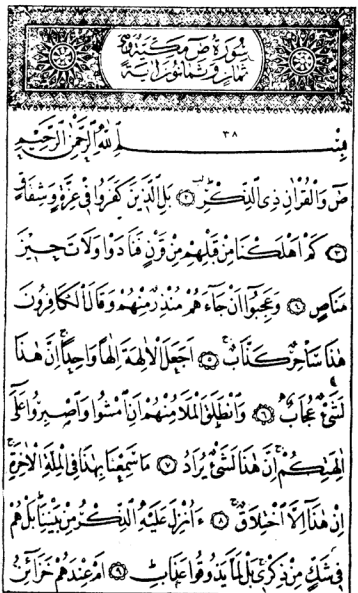 سورة ص مكية وهي
ثمان وثمانون آية
٣٨
بِسْمِ اللّٰهِ الرَّحْمٰنِ الرَّحِيمِ
صٓ وَالْقُرْاٰنِ ذِي الذِّكْرِۜ ﴿١﴾ بَلِ الَّذِينَ كَفَرُوا فِي عِزَّةٍ وَشِقَاقٍ
﴿٢﴾ كَمْ اَهْلَكْنَا مِنْ قَبْلِهِمْ مِنْ قَرْنٍ فَنَادَوْا وَلَاتَ حِينَ
مَنَاصٍ ﴿٣﴾ وَعَجِبُٓوا اَنْ جَٓاءَهُمْ مُنْذِرٌ مِنْهُمْ وَقَالَ الْكَافِرُونَ
هٰذَا سَاحِرٌ كَذَّابٌ ﴿٤﴾ اَجَعَلَ الْاٰلِهَةَ اِلٰهًا وَاحِدًا اِنَّ هٰذَا
لَشَيْءٌ عُجَابٌ ﴿٥﴾ وَانْطَلَقَ الْمَلَاُ مِنْهُمْ اَنِ امْشُوا وَاصْبِرُوا عَلٰٓى
اٰلِهَتِكُمْ اِنَّ هٰذَا لَشَيْءٌ يُرَادُ ﴿٦﴾ مَا سَمِعْنَا بِهٰذَا فِي الْمِلَّةِ الْاٰخِرَةِ
اِنْ هٰذَٓا اِلَّا اخْتِلَاقٌ ﴿٧﴾ ءَاُنْزِلَ عَلَيْهِ الذِّكْرُ مِنْ بَيْنِنَا بَلْ هُمْ
فِي شَكٍّ مِنْ ذِكْرِي بَلْ لَمَّا يَذُوقُوا عَذَابِ ﴿٨﴾ اَمْ عِنْدَهُمْ خَزَٓائِنُ